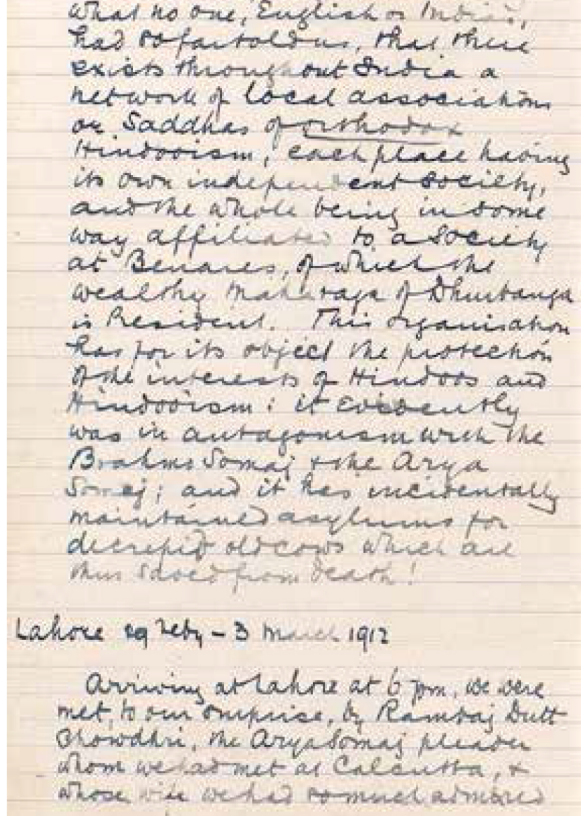 what no one, English or Indian,
had so far told us, that there
exists throughout India a
network of local associations
or Saddhas of orthodox
Hindooism, each place having
its own independent society,
and the whole being in some
way affiliated to a society
at Benares, of which the
wealthy Maharaja of Dhurbanga
is President. This organisation
has for its object the protection
of the interests of Hindoos and
Hindooism: it evidently
was in antagonism with the
Brahmo Somaj & the Arya
Somaj; and it has incidentally
maintained asylums for
decrepid old cows which are
thus saved from death!
Lahore 29 Feby - 3 March 1912
Arriving at Lahore at 6 pm, we were
met, to our surprise, by Rambaj Dutt
Chowdhri, the Arya Somaj pleader
whom we had met at Calcutta, &
whose wife we had so much admired